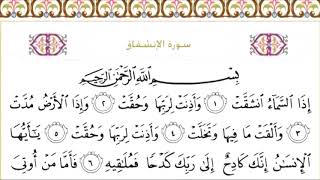 سورة الإنشقاق
بِسْمِ اللَّهِ الرَّحْمَٰنِ الرَّحِيمِ
إِذَا السَّمَاءُ انشَقَّتْ ١ وَأَذِنَتْ لِرَبِّهَا وَحُقَّتْ ٢ وَإِذَا الْأَرْضُ مُدَّتْ
٣ وَأَلْقَتْ مَا فِيهَا وَتَخَلَّتْ ٤ وَأَذِنَتْ لِرَبِّهَا وَحُقَّتْ ٥ يَٰٓأَيُّهَا
الْإِنسَٰنُ إِنَّكَ كَادِحٌ إِلَىٰ رَبِّكَ كَدْحًا فَمُلَٰقِيهِ ٦ فَأَمَّا مَنْ أُوتِيَ